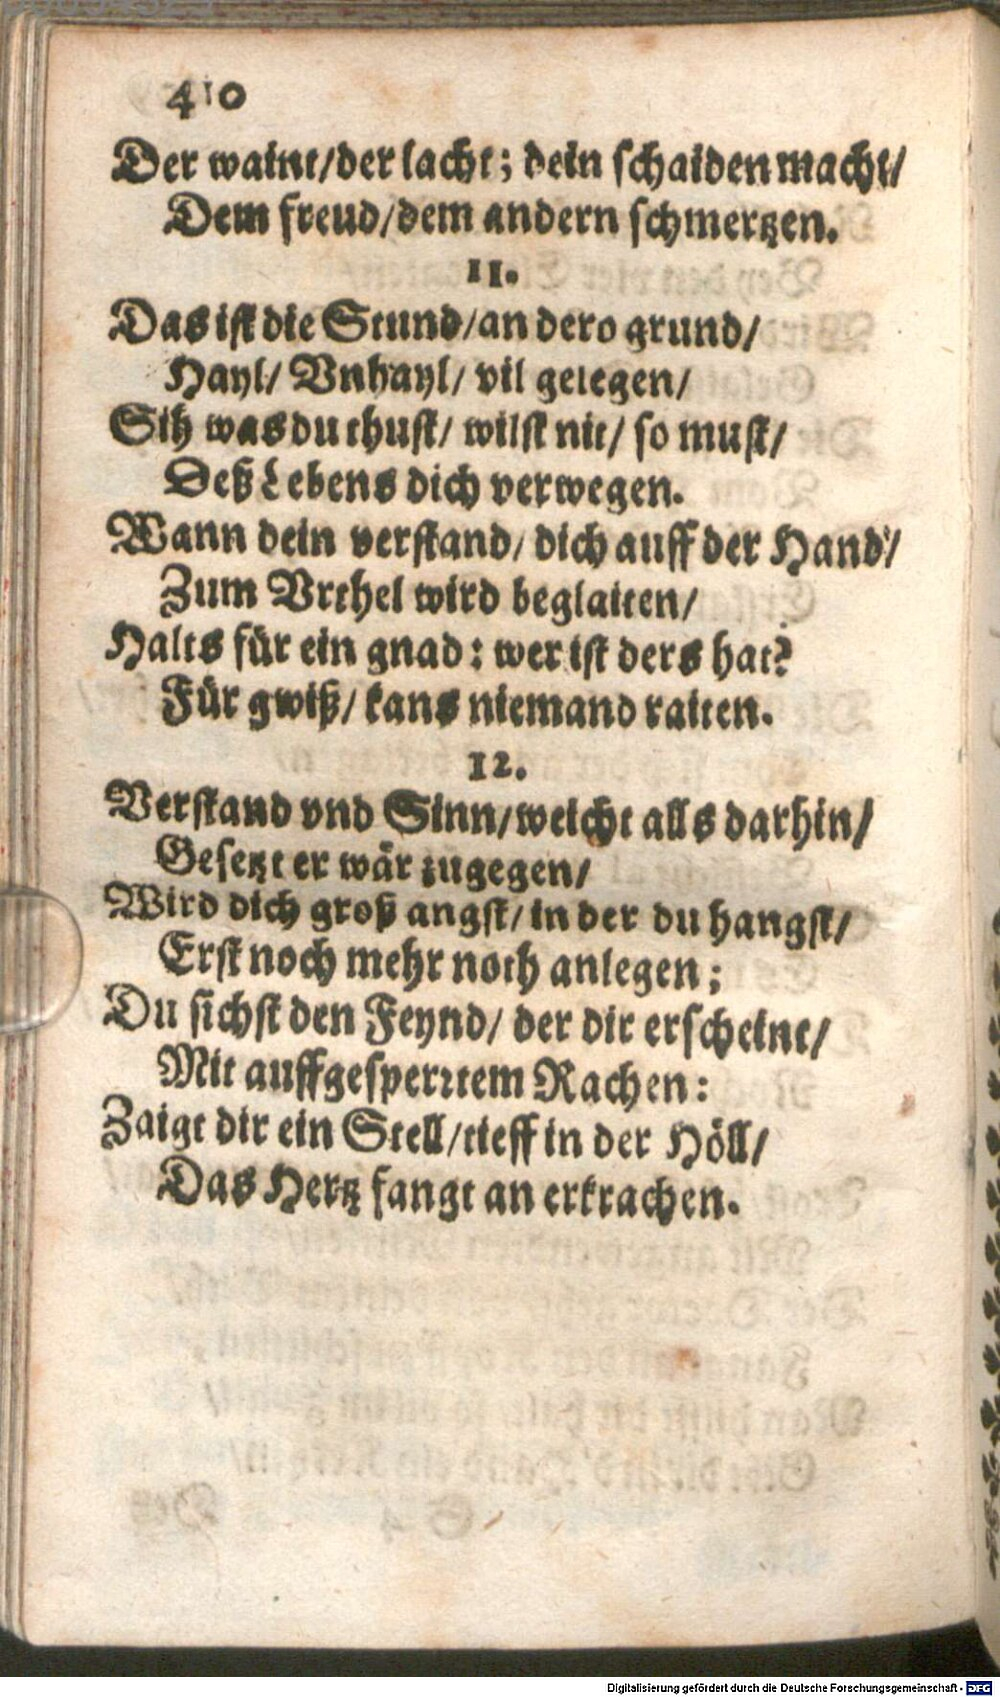 410
Der waint/der lacht; dein schaiden macht/
Dem freud/dem andern schmertzen.
11.
Das ist die Stund/an dero grund/
Hayl/ Vnhayl/ vil gelegen/
Sih was du thust/ wilst nit/ so must/
Deß Lebens dich verwegen.
Wann dein verstand/ dich auff der Hand/
Zum Vrthel wird beglaiten/
Halts für ein gnad: wer ist ders hat?
Für gwiß/ kans niemand raiten.
12.
Verstand vnd Sinn/weicht alls darhin/
Gesetzt er wär zugegen/
Wird dich groß angst/in der du hangst/
Erst noch mehr noth anlegen;
Du sichst den Feynd/ der dir erscheint/
Mit auffgesperꝛtem Rachen:
Zaigt dir ein Stell/tieff in der Höll/
Das Hertz fangt an erkrachen.
Digitalisierung gefördert durch die Deutsche Forschungsgemeinschaft - DFG